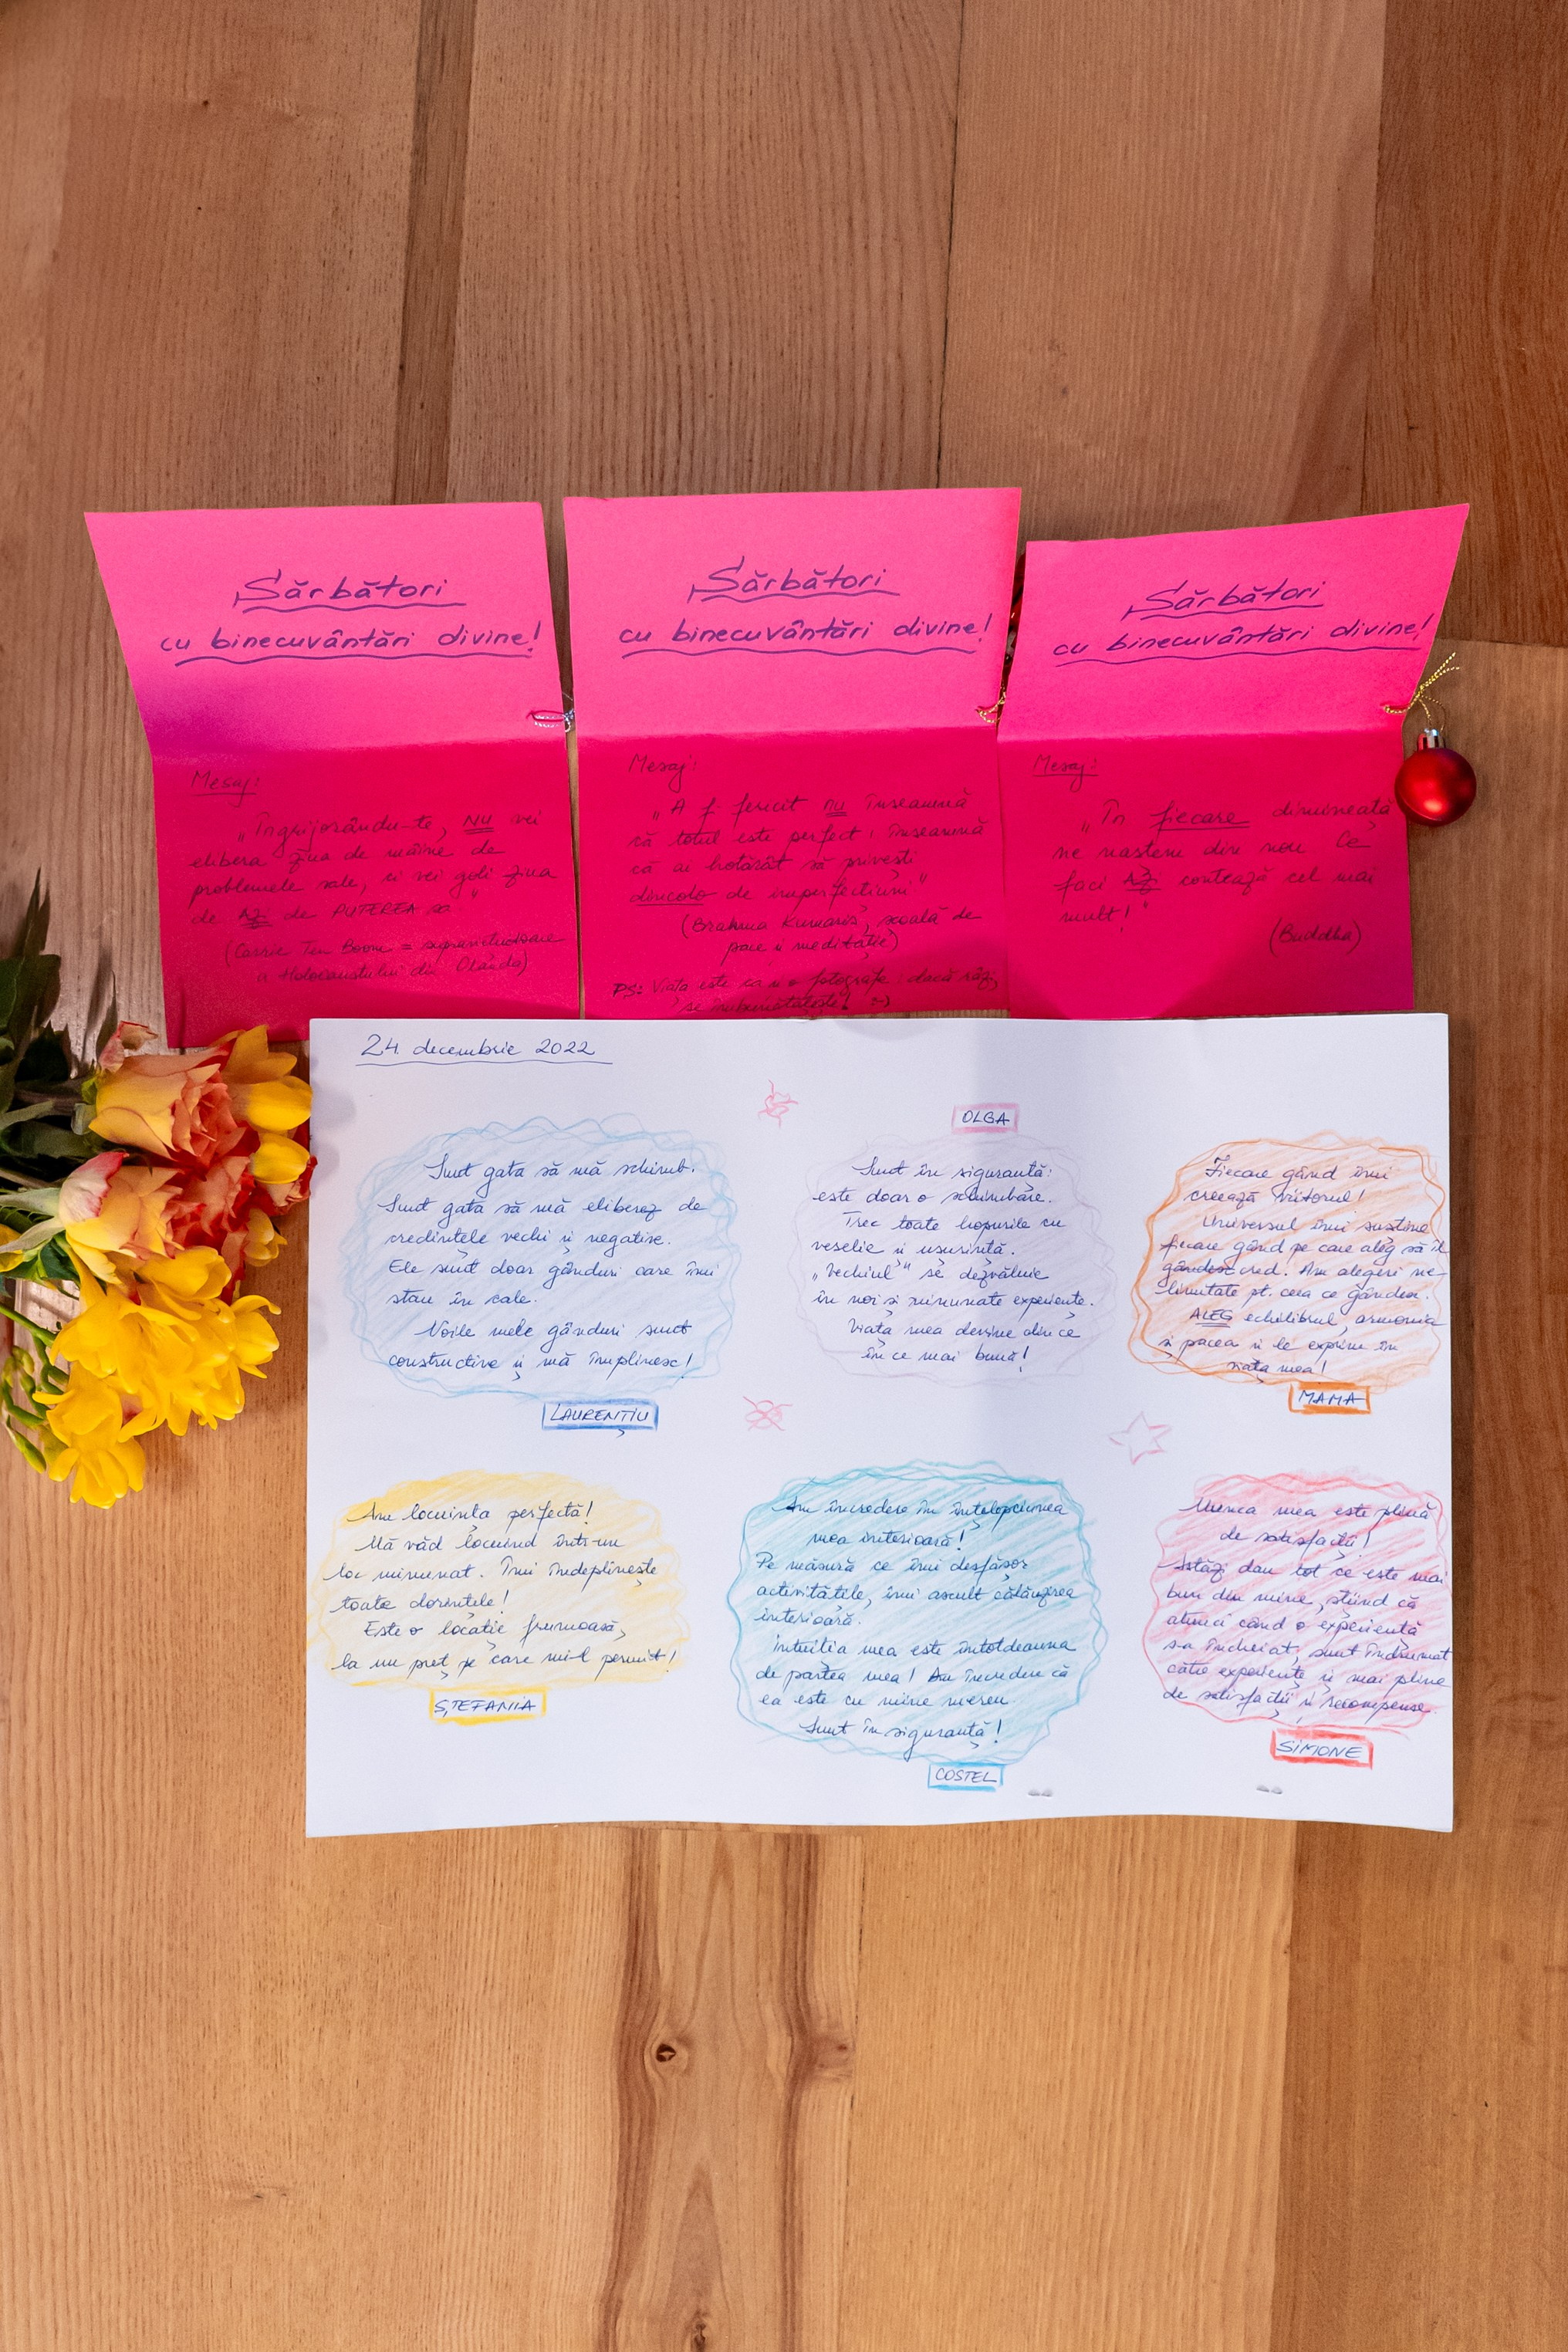 Sărbători
cu binecuvântări divine!
Mesaj:
„Îngrijorându-te, NU vei
elibera ziua de mâine de
problemele sale, ci vei goli ziua
de AZI de PUTEREA sa"
(Corrie Ten Boom = supraviețuitoare
a Holocaustului din Olanda)
Sărbători
cu binecuvântări divine!
Mesaj:
„A fi fericit nu înseamnă
că totul este perfect; înseamnă
că ai hotărât să privești
dincolo de imperfecțiuni"
(Brahma Kumaris, școală de
pace și meditație)
PS: Viața este ca și o fotografie: dacă râzi,
se îmbunătățește! :)
Sărbători
cu binecuvântări divine!
Mesaj:
„În fiecare dimineață
ne naștem din nou. Ce
faci AZI contează cel mai
mult!"
(Buddha)
24. decembrie 2022
Sunt gata să mă schimb.
Sunt gata să mă eliberez de
credințele vechi și negative.
Ele sunt doar gânduri care îmi
stau în cale.
Noile mele gânduri sunt
constructive și mă împlinesc!
LAURENȚIU
OLGA
Sunt în siguranță:
este doar o schimbare.
Trec toate hopurile cu
veselie și ușurință.
„Vechiul" se dezvăluie
în noi și minunate experiențe.
Viața mea devine din ce
în ce mai bună!
Fiecare gând îmi
creează viitorul!
Universul îmi susține
fiecare gând pe care aleg să îl
gândesc cred. Am alegeri ne-
limitate pt. ceea ce gândesc.
ALEG echilibrul, armonia
și pacea și le exprim în
viața mea!
MAMA
Am locuința perfectă!
Mă văd locuind într-un
loc minunat. Îmi îndeplinește
toate dorințele!
Este o locație frumoasă,
la un preț pe care mi-l permit!
ȘTEFANIA
Am încredere în înțelepciunea
mea interioară!
Pe măsură ce îmi desfășor
activitățile, îmi ascult călăuzirea
interioară.
Intuiția mea este întotdeauna
de partea mea! Am încredere că
ea este cu mine mereu.
Sunt în siguranță!
COSTEL
Munca mea este plină
de satisfacții!
Astăzi dau tot ce este mai
bun din mine, știind că
atunci când o experiență
s-a încheiat, sunt îndrumat
către experiențe și mai pline
de satisfacții și recompense.
SIMONE